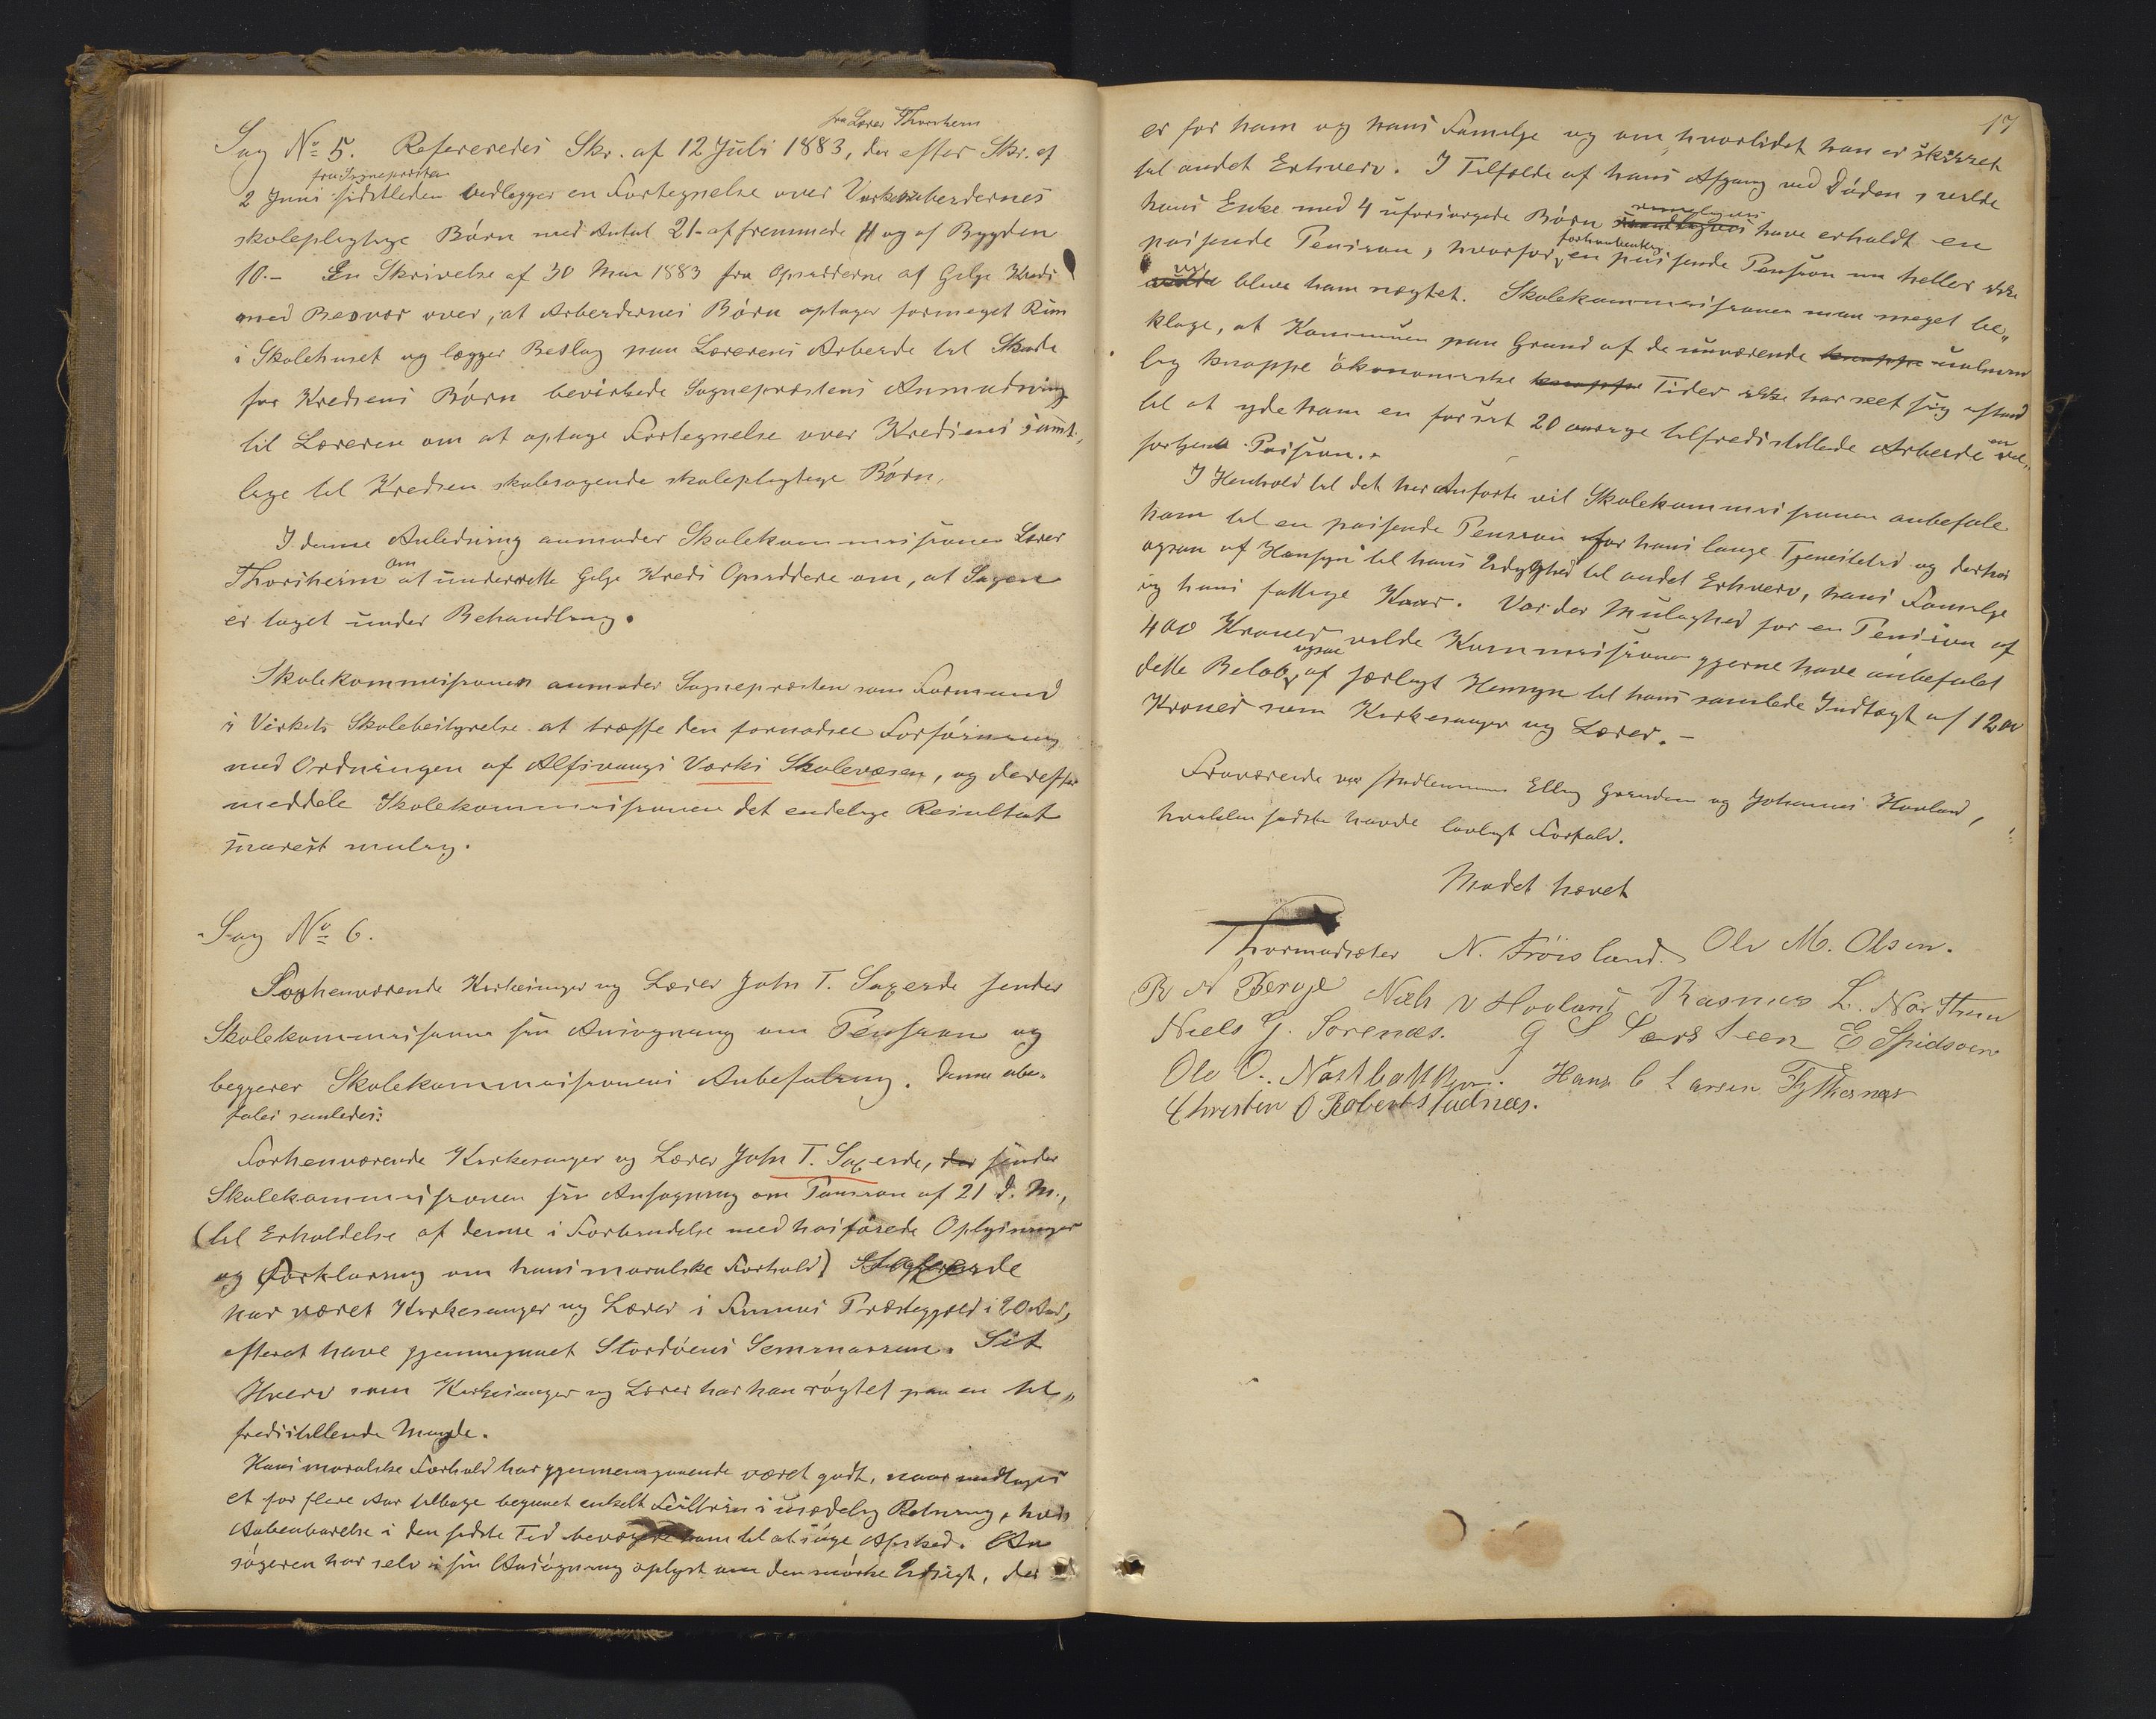 fra Lærer Thorsheim
Sag No 5. Refereredes Skr. af 12 Juli 1883, der efter Skr. af
fra Sognepræsten
2 Juni sidstleden vedlægger en Fortegnelse over Værksarbeidernes
skolepligtige Børn med Antal 21 - af fremmede 11 og af Bygden
10. - En Skrivelse af 30 Mai 1883 fra Opsidderne af Gilje Kreds
med Besvær over, at Arbeidernes Børn optager formeget Rum
i Skolehuset og lægger Beslag paa Lærerens Arbeide til Skade
for Kredsens Børn bevirkede Sognepræstens Anmodning
til Læreren om at optage Fortegnelse over Kredsens samt„
lige til Kredsen skolesøgende skolepligtige Børn.
I denne Anledning anmoder Skolekommissionen Lærer
Thorsheim om at underrette Gilje Kreds Opsiddere om, at Sagen
er taget under Behandling.
Skolekommissionen anmoder Sognepræsten som Formand
i Verkets Skolebestyrelse at træffe den fornødne Forføining
med Ordningen af Alfsvaags Værks Skolevæsen, og derefter
meddele Skolekommissionen det endelige Resultat
snarest mulig.
Sag No 6.
Forhenværende Kirkesanger og Lærer John T. Sageide sender
Skolekommissionen sin Ansøgning om Pension og
begjærer Skolekommissionens Anbefaling. Denne anbe-
fales saaledes:
Forhenværende Kirkesanger og Lærer John T. Sageide, der sender
Skolekommissionen sin Ansøgning om Pension af 21 d. M.,
(til Erholdelse af denne i Forbindelse med hosføiede Oplysninger
og Forklaring om hans moralske Forhold) Sageide
har været Kirkesanger og Lærer i Finnaas Præstegjæld i 20 Aar,
efterat have gjennemgaaet Stordøens Seminarium. Sit
Hverv som Kirkesanger og Lærer har han røgtet paa en til„
fredsstillende Maade.
Hans moralske Forhold har gjennemgaaende været godt, naar undtages
et for flere Aar tilbage begaaet enkelt Feiltrin i usædelig Retning, hvis
Aabenbarelse i den sidste Tid bevægede ham til at søge Afsked. An
søgeren har selv i sin Ansøgning oplyst om den mørke Udsigt, der
17
er for ham og hans Familje og om, hvorlidet han er skikket
til andet Erhverv. I Tilfælde af hans Afgang ved Døden, vilde
hans Enke med 4 uforsørgede Børn rimeligvis have erholdt en
passende Pension, hvorfor forhaabentlig en passende Pension nu heller ikke
vil blive ham nægtet. Skolekommissionen maa meget be„
klage, at Kommunen paa Grund af de nuværende knappe ualmin
lig knappe økonomiske knappe Tider ikke har seet sig istand
til at yde ham en for sit 20 aarige tilfredsstillende Arbeide en vel„
fortjent Pension.
I Henhold til det her Anførte vil Skolekommissionen anbefale
ham til en passende Pension for hans lange Tjenestetid og derhos
ogsaa af Hensyn til hans Udygtighed til andet Erhverv, hans Familje
og hans fattige Kaar. Var der Mulighed for en Pension af
400 Kroner vilde Kommissionen gjerne have anbefalet
dette Beløb, ogsaa af særligt Hensyn til hans samlede Indtægt af 1200
Kroner som Kirkesanger og Lærer. -
Fraværende var Medlemmerne Elling Grinden og Johannes Hovland,
hvilken sidste havde lovligt Forfald.
Mødet hævet
Thormodsæter N. Fröisland. Ole M. Olsen.
R N Berge Nils V Hovland Rasmus L. Nordthun
Niels G. Sorenæs. G S Særsteen E. Spidsøen
Ole O. Nøstbakken. Hans C Larsen Fylkesnæs
Christen O Robertstadnæs.